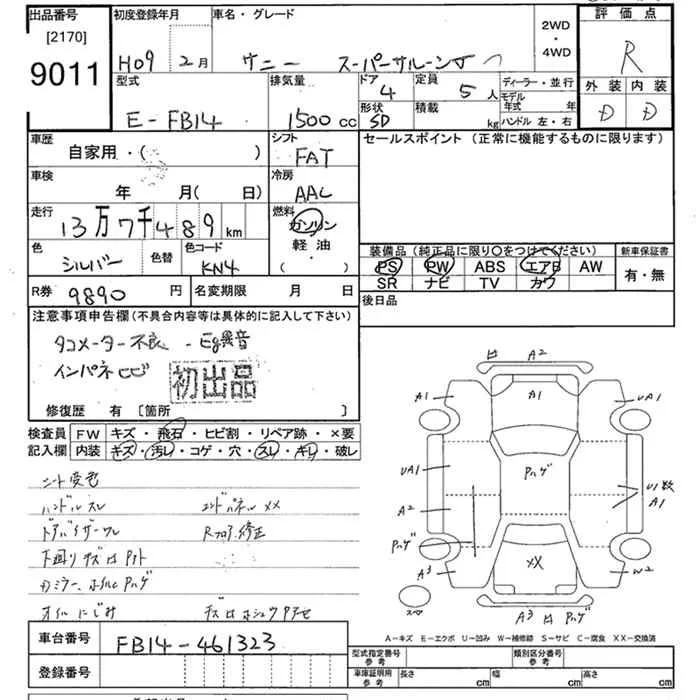 出品番号
[2170]
9011
初度登録年月
H09 2月
車名・グレード
サニー スーパーサルーン
2WD
・
4WD
評価点
R
外装 内装
D D
型式
E-FB14
排気量
1500 cc
ドア
4
定員
5 人
形状
SD
積載
kg
ディーラー・並行
モデル
年式 年
ハンドル 左・右
車歴
自家用・( )
シフト
FAT
セールスポイント (正常に機能するものに限ります)
車検
年 月( 日)
冷房
AAC
走行
13万7千489 km
燃料
ガソリン
軽油
・
( )
色
シルバー
色替
色コード
KN4
装備品 (純正品に限り○をつけてください)
新車保証書
PS PW ABS エアB AW
SR ナビ TV カワ
有・無
R券 9890 円
名変期限 月 日
後日品
注意事項申告欄(不具合内容等は具体的に記入して下さい)
タコメーター不良 - Eg異音
インパネヒビ
初出品
修復歴 有 [箇所 ]
検査員
記入欄
FW キズ・飛石・ヒビ割・リペア跡・×要
内装 キズ・汚し・コゲ・穴・スレ・キレ・破レ
シート変色
ハンドルスレ エンドパネルXX
ドアバイザーワレ Rフロア修正
下廻りキズ
オイルにじみ
A2
A1
A1
UA1
UA1
A2
U1数
A1
Pハゲ
Pハゲ
XX
A3
W2
A3
Pハゲ
スペア
A-キズ E-エクボ U-凹み W-補修跡 S-サビ C-腐食 XX-交換済
車台番号
FB14-461323
登録番号
型式指定番号
参考
類別区分番号
参考
車庫証明用
参考
長さ cm
幅 cm
高さ cm